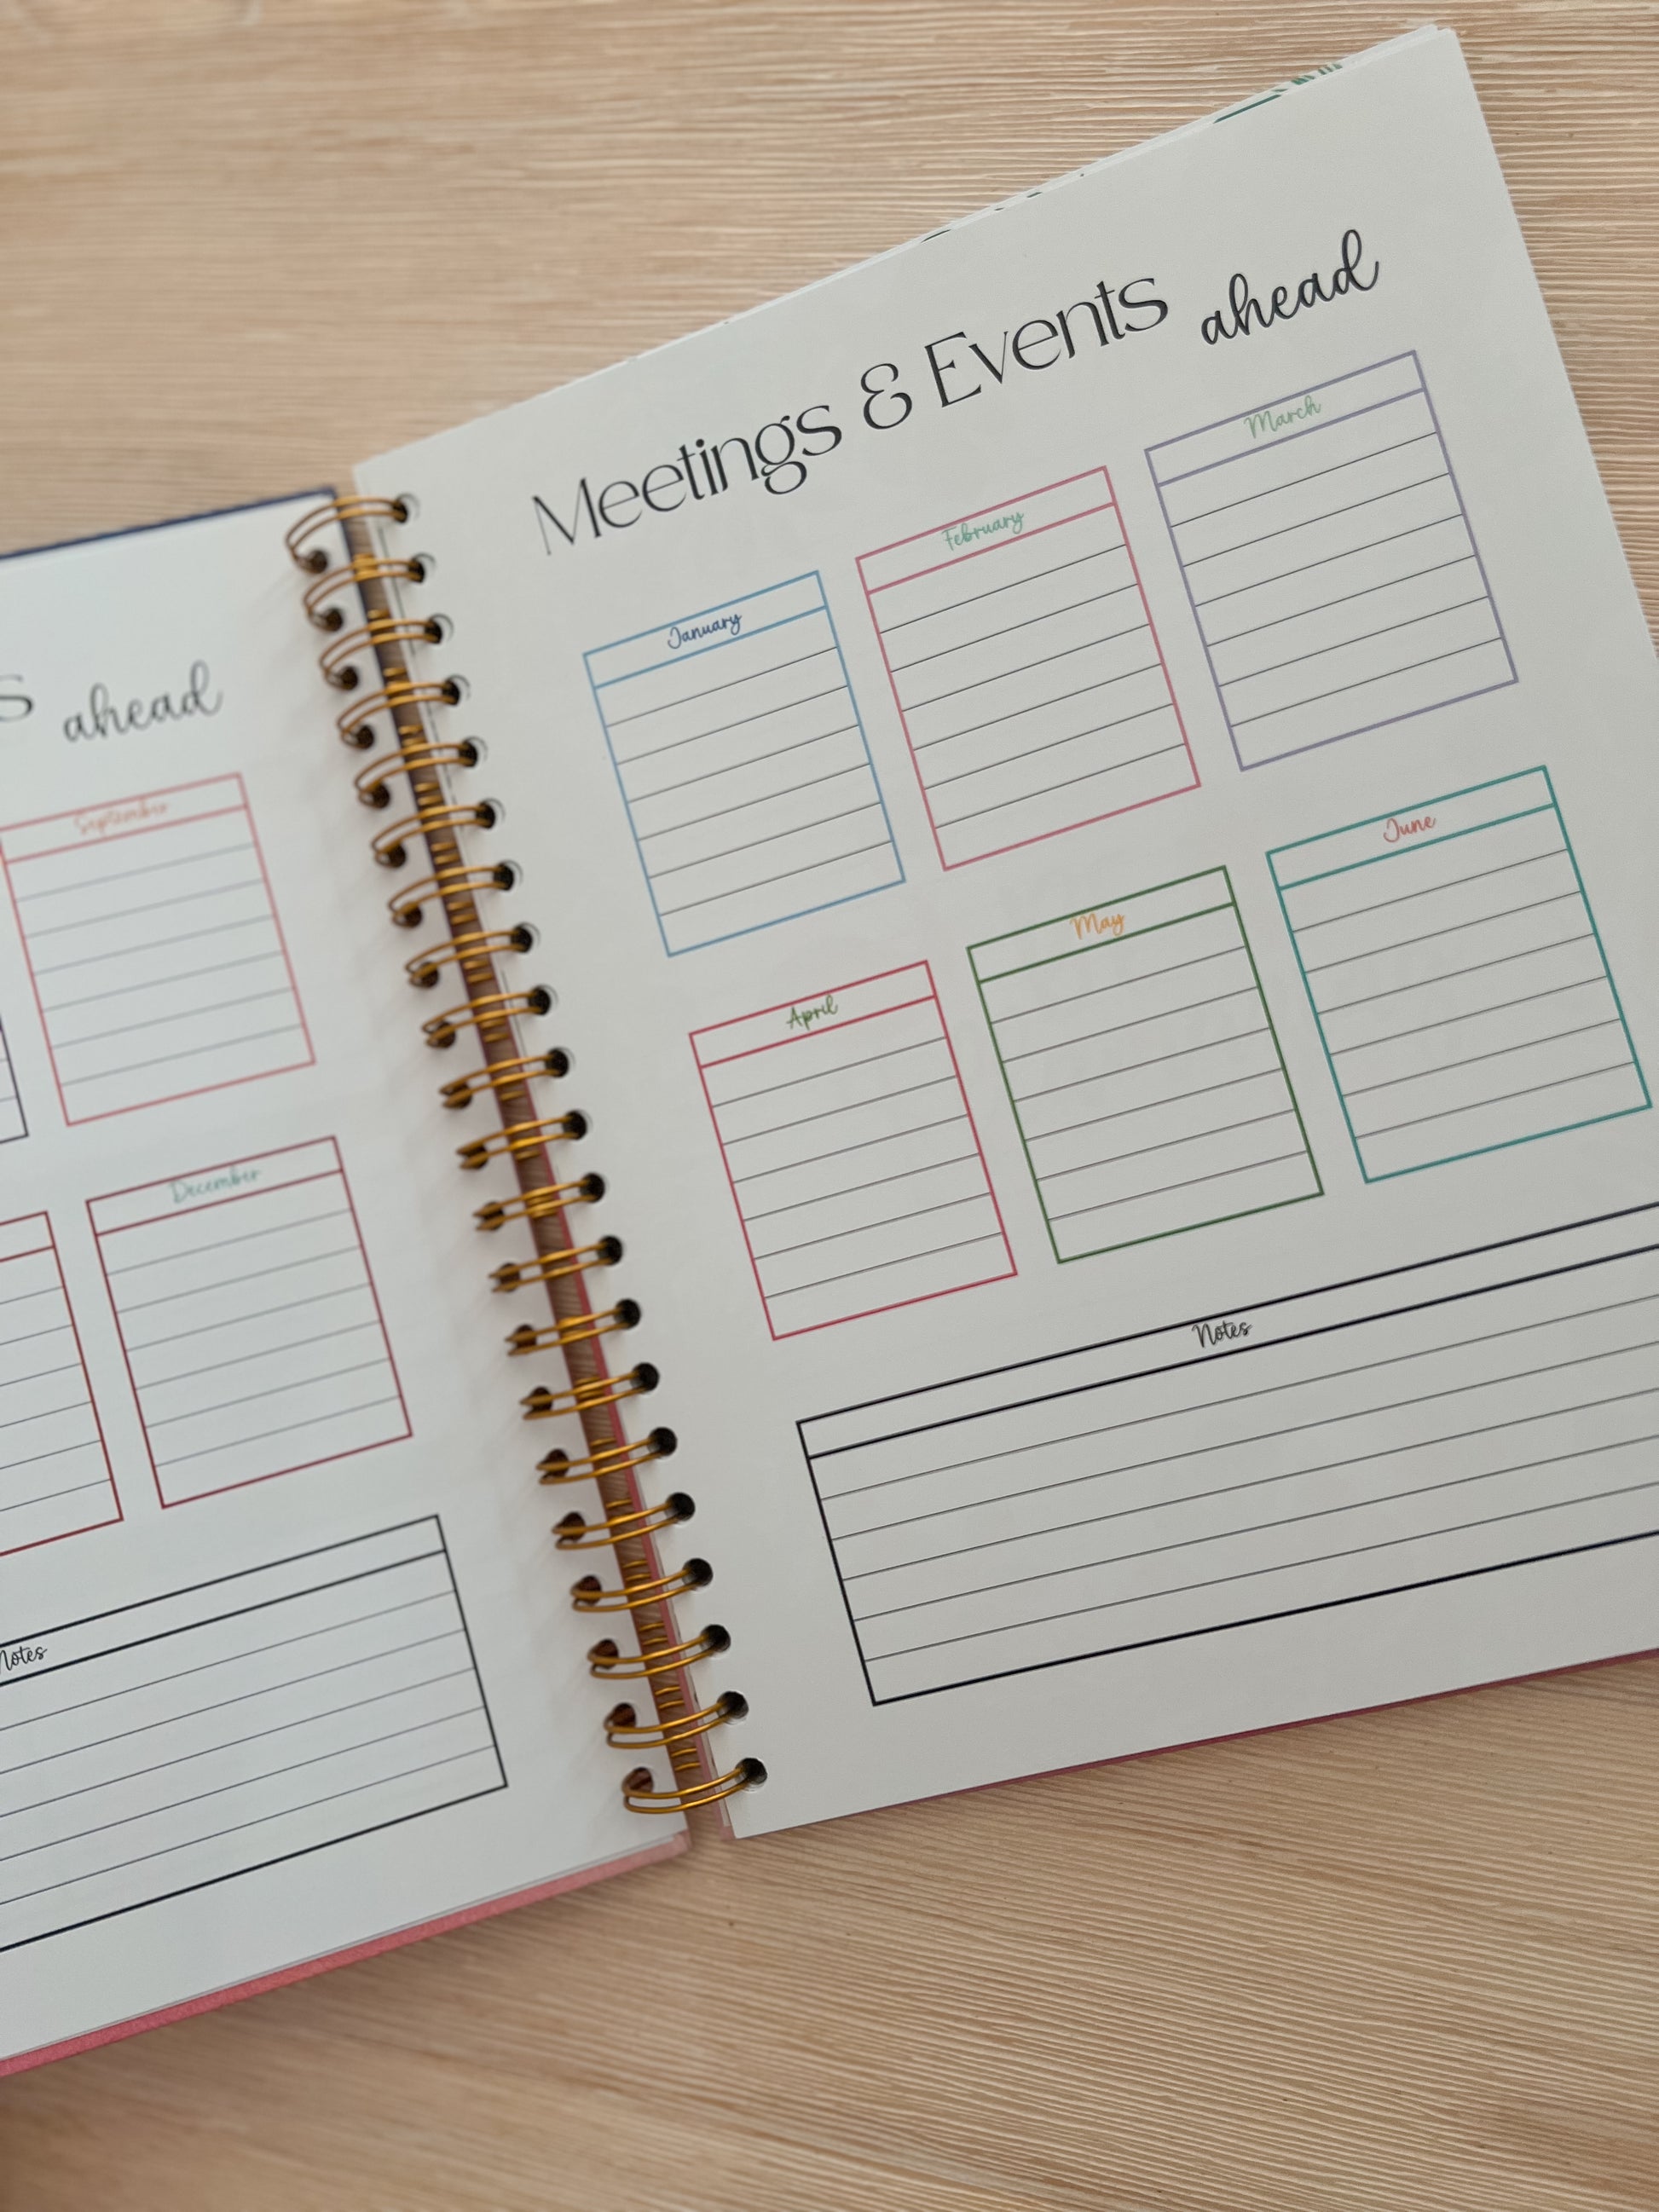 ahead
September
December
Notes
Meetings & Events ahead
January
February
March
April
May
June
Notes